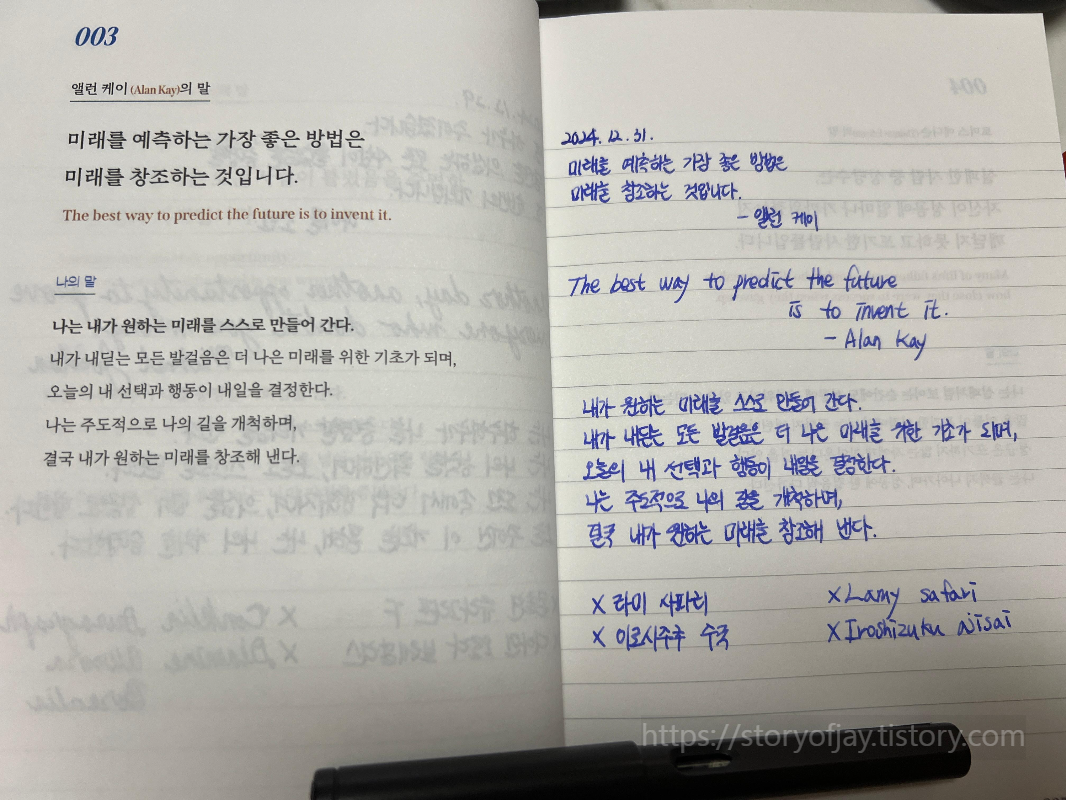 003
앨런 케이(Alan Kay)의 말
미래를 예측하는 가장 좋은 방법은
미래를 창조하는 것입니다.
The best way to predict the future is to invent it.
나의 말
나는 내가 원하는 미래를 스스로 만들어 간다.
내가 내딛는 모든 발걸음은 더 나은 미래를 위한 기초가 되며,
오늘의 내 선택과 행동이 내일을 결정한다.
나는 주도적으로 나의 길을 개척하며,
결국 내가 원하는 미래를 창조해 낸다.
2024. 12. 31.
미래를 예측하는 가장 좋은 방법은
미래를 창조하는 것입니다.
- 앨런 케이
The best way to predict the future
is to invent it.
- Alan Kay
내가 원하는 미래를 스스로 만들어 간다.
내가 내딛는 모든 발걸음은 더 나은 미래를 위한 기초가 되며,
오늘의 내 선택과 행동이 내일을 결정한다.
나는 주도적으로 나의 길을 개척하며,
결국 내가 원하는 미래를 창조해 낸다.
× 라미 사파리 × Lamy safari
× 이로시주쿠 수국 × Iroshizuku ajisai
https://storyofjay.tistory.com